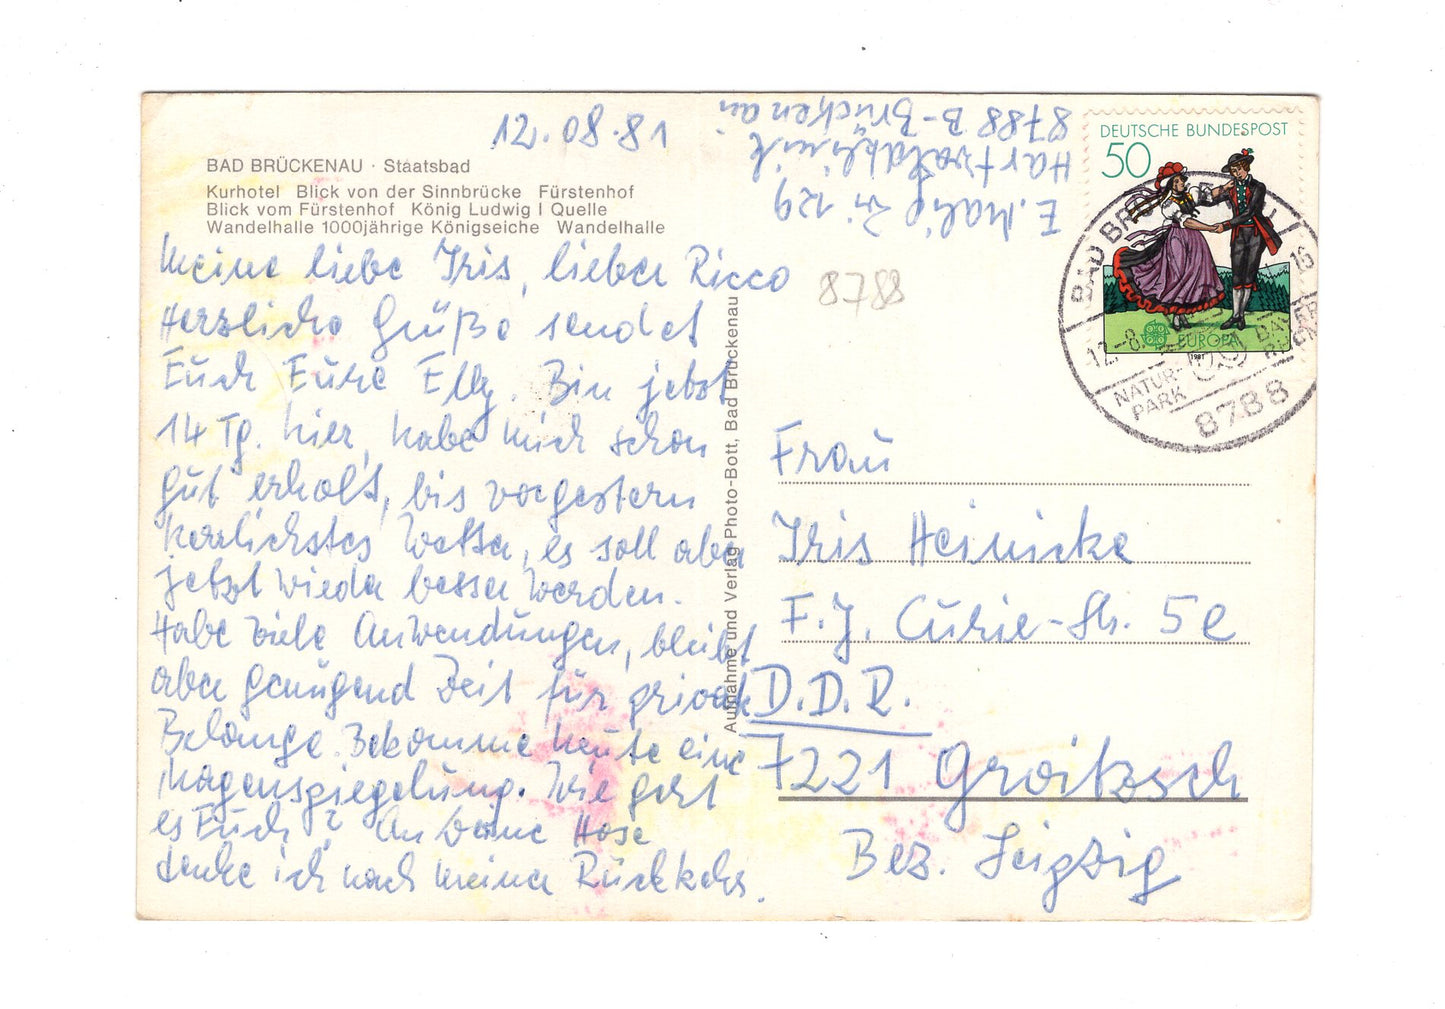 12.08.81
BAD BRÜCKENAU · Staatsbad
Kurhotel Blick von der Sinnbrücke Fürstenhof
Blick vom Fürstenhof König Ludwig I Quelle
Wandelhalle 1000jährige Königseiche Wandelhalle
Meine liebe Iris, lieber Ricco
Herzliche Grüße sendet
Euch Eure Elly. Bin jetzt
14 Tg. hier, habe mich schon
gut erholt, bis vorgestern
herrlichstes Wetter, es soll aber
jetzt wieder besser werden.
Habe viele Anwendungen, bleibt
aber genügend Zeit für privat
Belange. Bekomme heute eine
Magenspiegelung. Wie geht
es Euch? An Deine Hose
denke ich nach meiner Rückkehr.
Aufnahme und Verlag Photo-Bott, Bad Brückenau
E. Zi 129
Hartwaldklinik
8788 B-Brückenau
8788
DEUTSCHE BUNDESPOST
50
EUROPA
1981
BAD BR
12.-8.
16
NATUR-
PARK
8788
Frau
Iris Heinicke
F. J. Curie-Str. 5e
D.D.R.
7221 Groitzsch
Bez. Leipzig